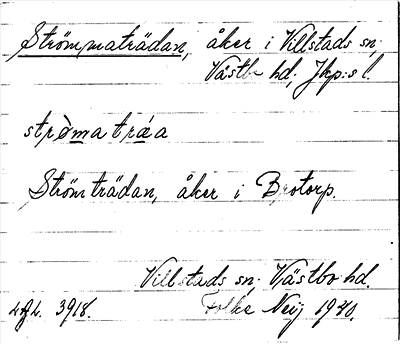 Strömmaträdan, åker i Villstads sn,
Västbo hd, Jkp:s l.
strömatráa
Strömträdan, åker i Brotorp.
Villstads sn, Västbo hd.
3918. Folke Neij 1940.